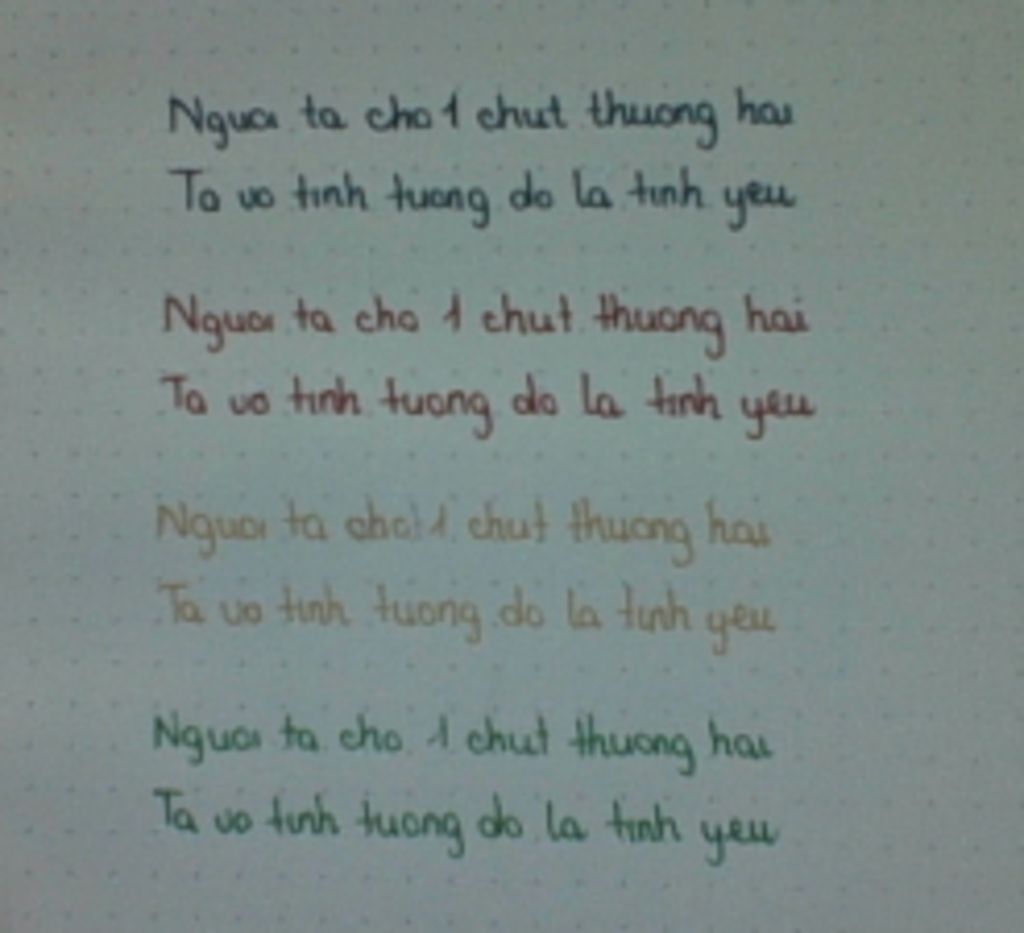 Nguoi ta cho 1 chut thuong hai
Ta vo tinh tuong do la tinh yeu
Nguoi ta cho 1 chut thuong hai
Ta vo tinh tuong do la tinh yeu
Nguoi ta cho 1 chut thuong hai
Ta vo tinh tuong do la tinh yeu
Nguoi ta cho 1 chut thuong hai
Ta vo tinh tuong do la tinh yeu